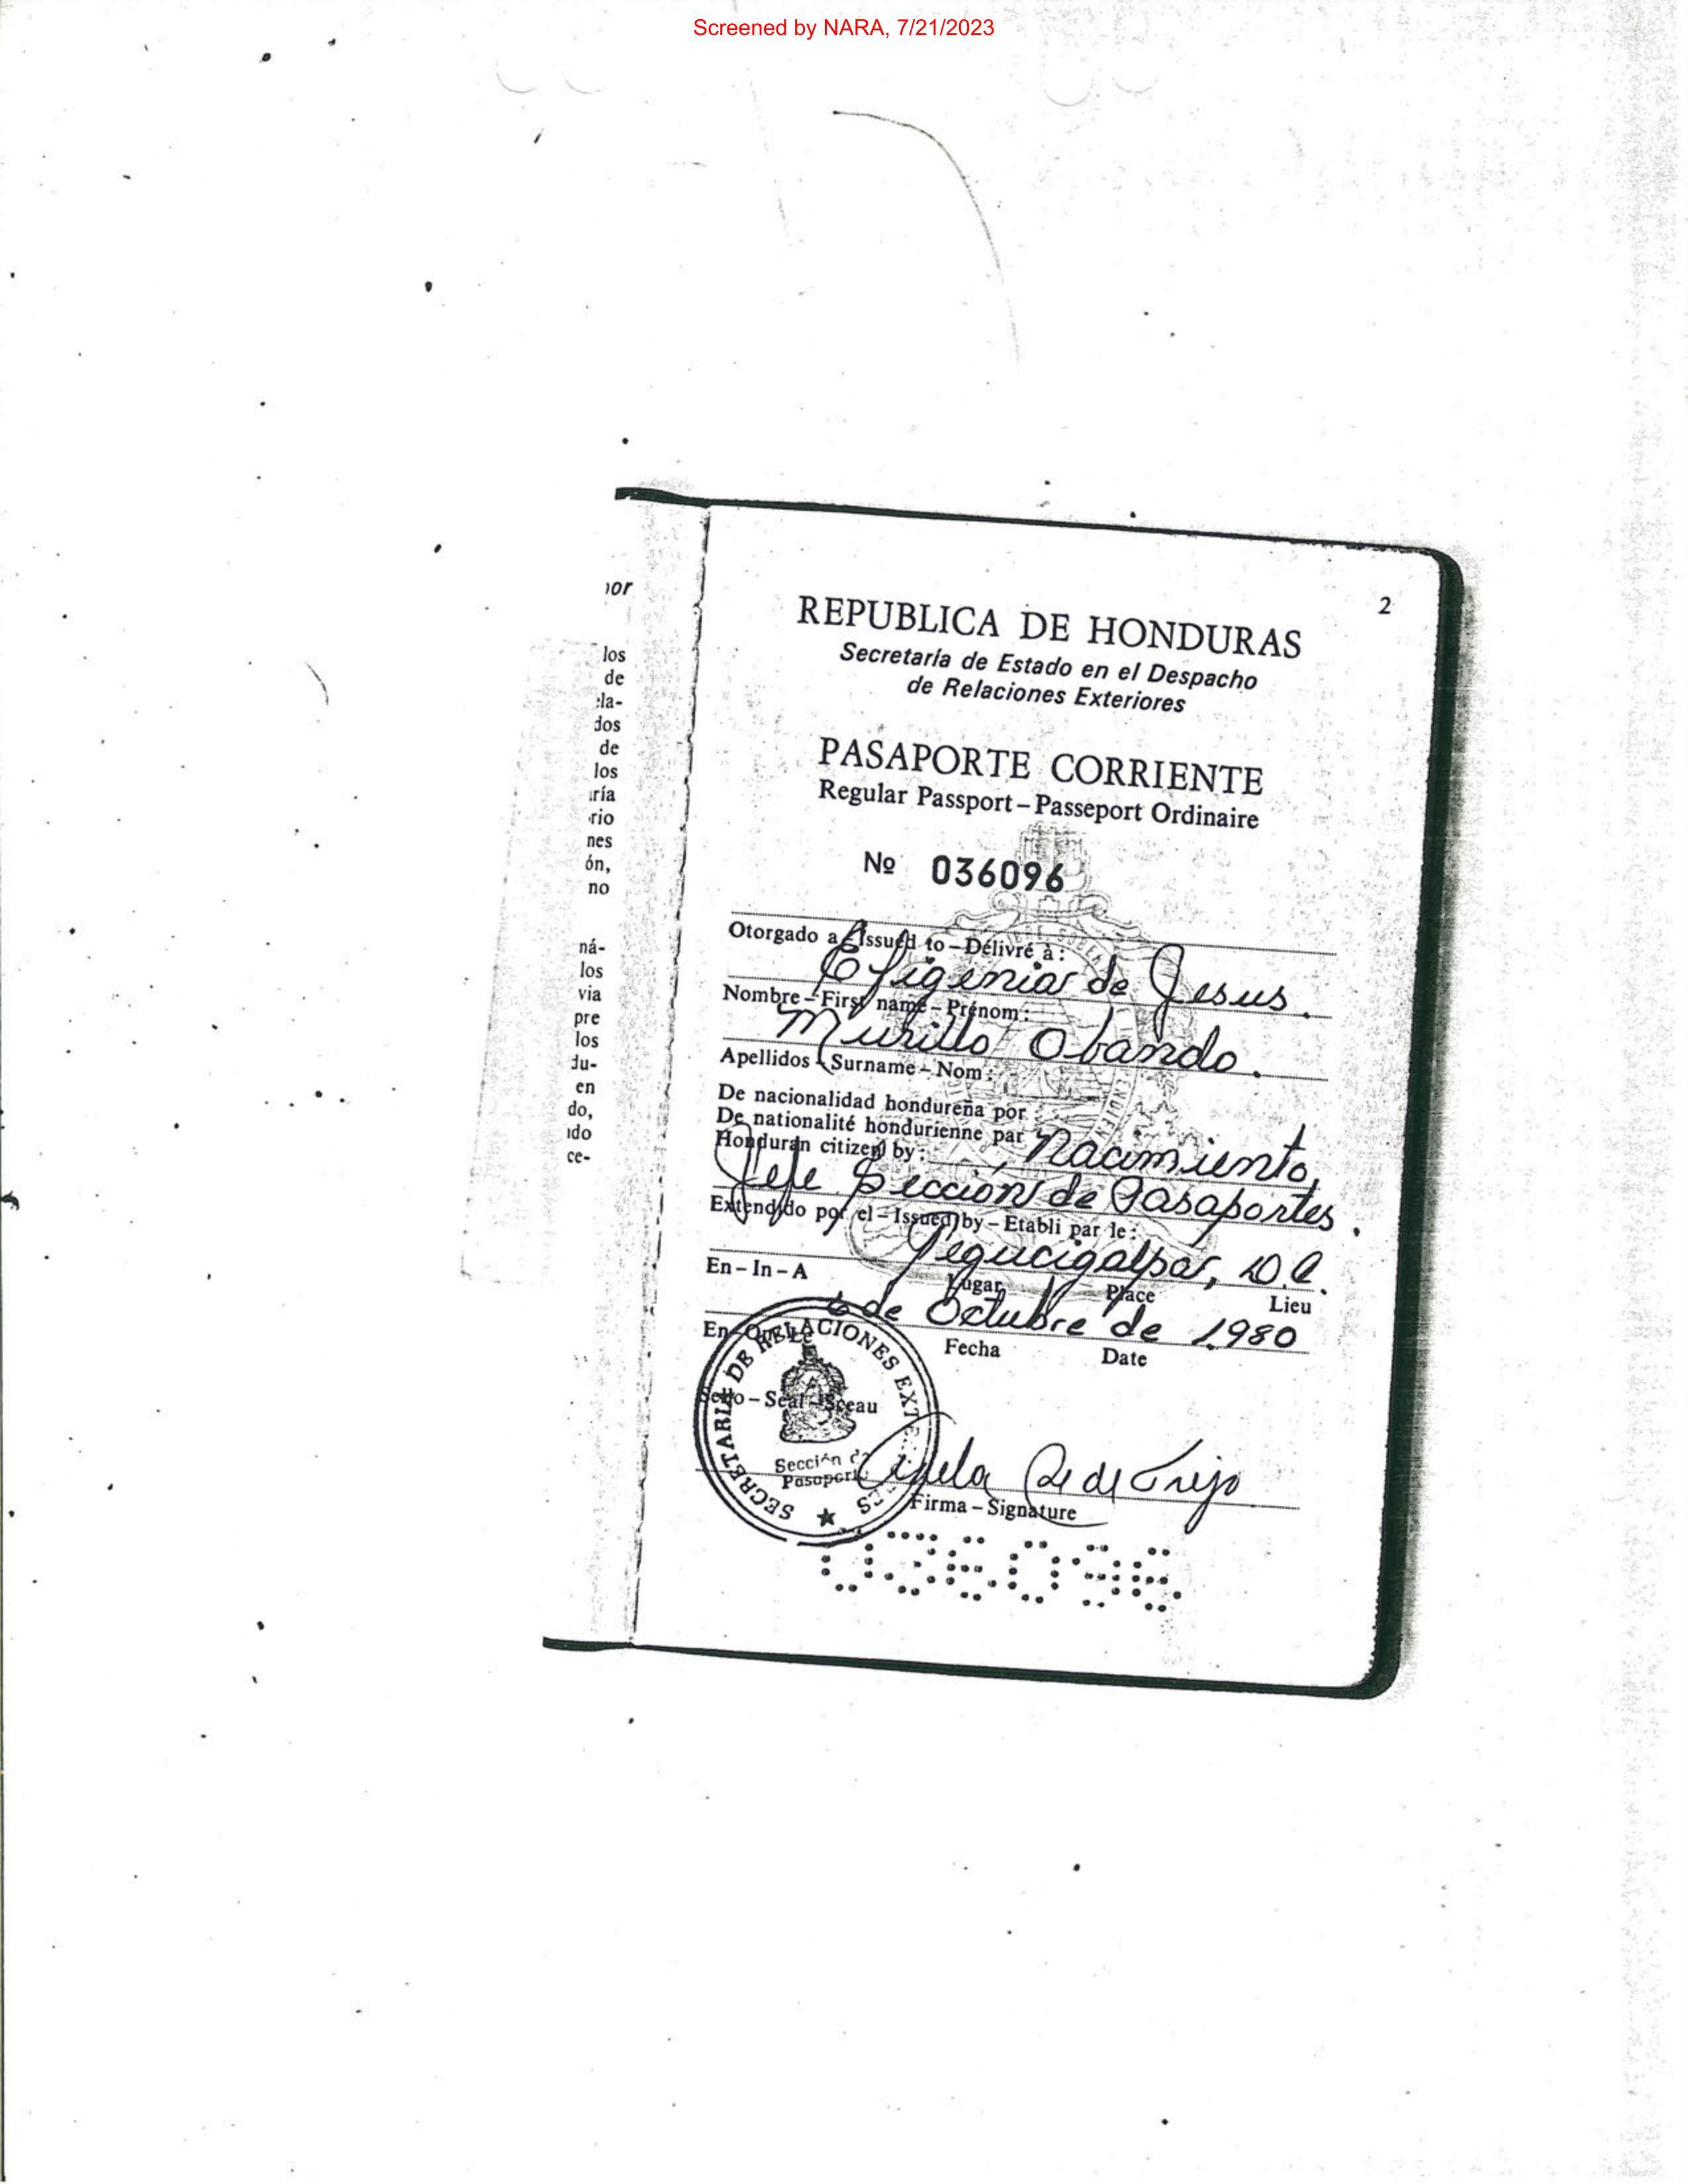 Screened by NARA, 7/21/2023
los
de
dos
de
los
nes
ón,
no
ná-
los
via
pre
los
en
do,
ce-
2
REPUBLICA DE HONDURAS
Secretaría de Estado en el Despacho
de Relaciones Exteriores
PASAPORTE CORRIENTE
Regular Passport – Passeport Ordinaire
Nº 036096
Otorgado a – Issued to – Délivré à :
Efigenia de Jesus.
Nombre – First name – Prénom :
Murillo Obando.
Apellidos – Surname – Nom :
De nacionalidad hondureña por
De nationalité hondurienne par
Honduran citizen by : Nacimiento,
Jefe Seccion de Pasaportes.
Extendido por el – Issued by – Etabli par le :
Tegucigalpa, D.C.
En – In – A Lugar Place Lieu
6 de Octubre de 1980
En – On – Le Fecha Date
SECRETARIA DE RELACIONES EXTERIORES
Sello – Seal – Sceau
Sección de
Pasaportes
de Trejo
Firma – Signature
036096